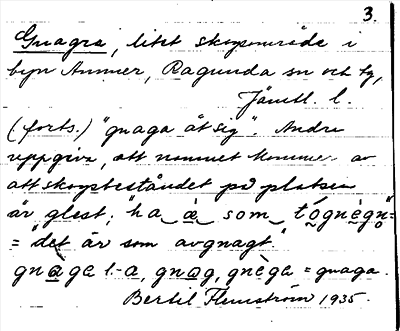 3.
Gnagra, litet skogsområde i
byn Ammer, Ragunda sn och tg,
Jämtl. l.
(forts.) "gnaga åt sig". Andra
uppgiva, att namnet kommer av
att skogsbeståndet på platsen
är glest; "ha è som tógnègn̥"=
= "det är som avgnagt."
gnaga l.-a, gnag, gnèga = gnaga.
Bertil Flemström 1935.